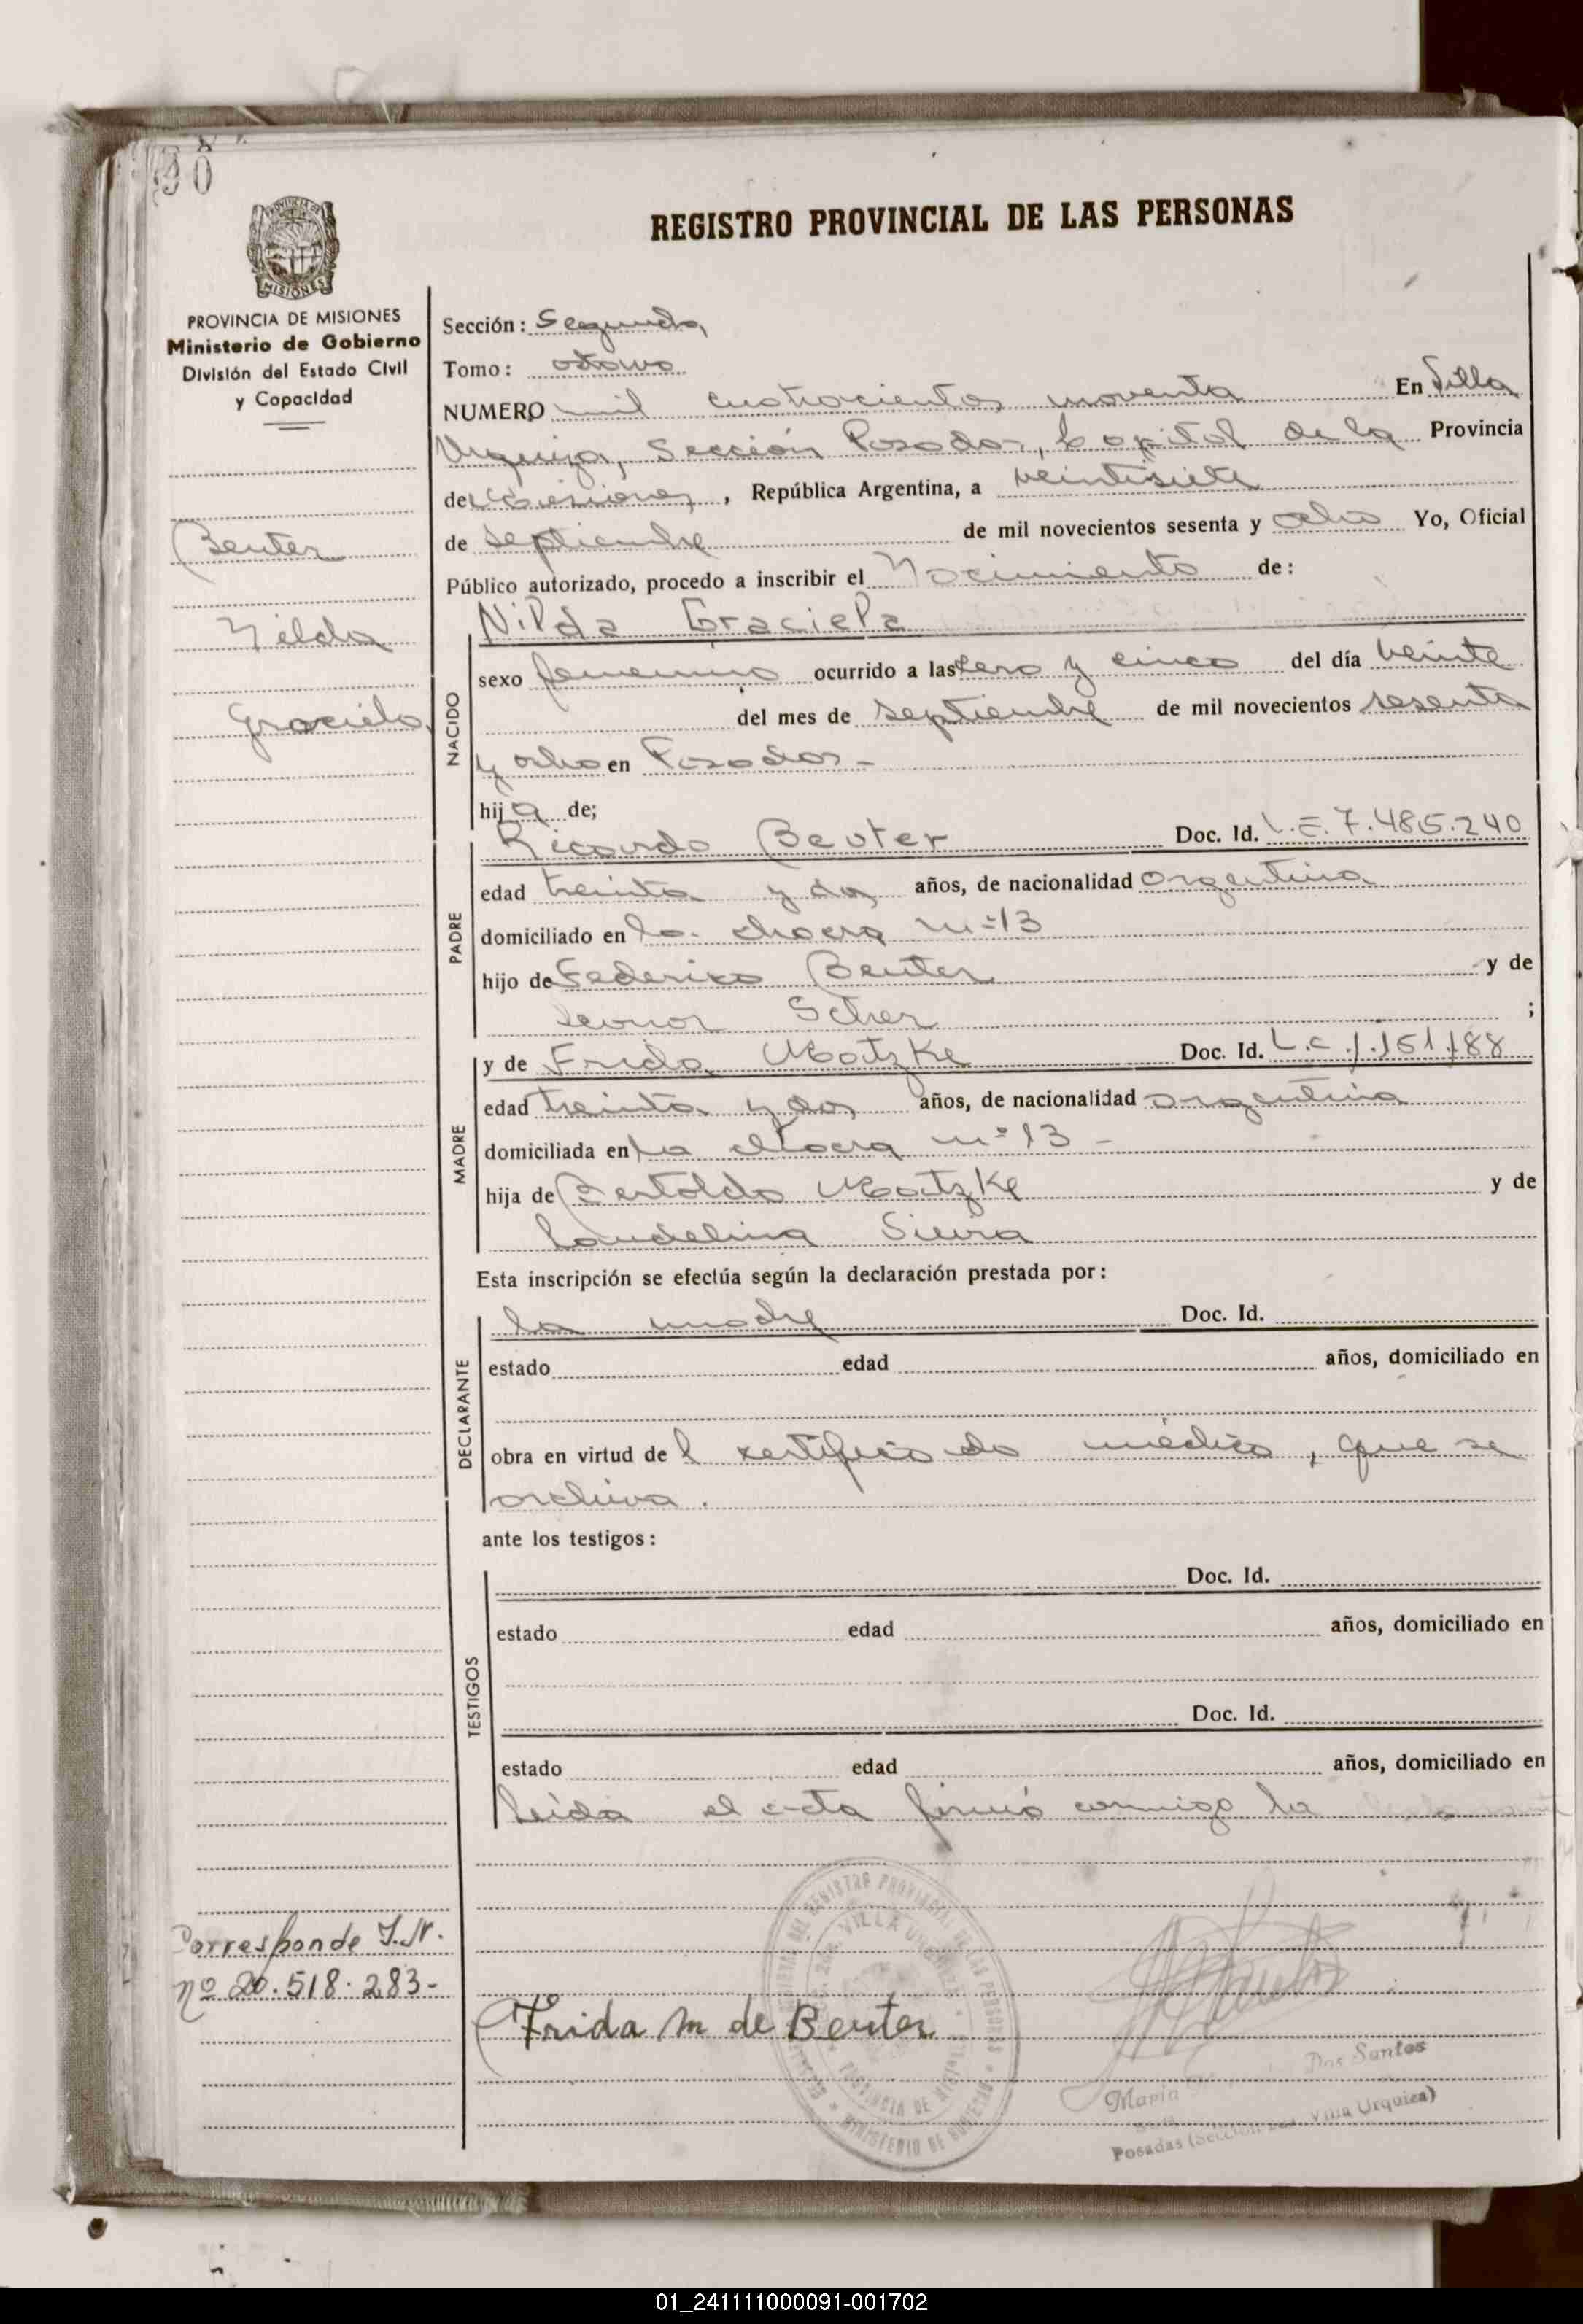 90
REGISTRO PROVINCIAL DE LAS PERSONAS
MISIONES
PROVINCIA DE MISIONES
Ministerio de Gobierno
División del Estado Civil
y Capacidad
Beuter
Nilda
Graciela
Sección: Segunda
Tomo: octavo
NUMERO mil cuatrocientos noventa En Villa
Urquiza, Sección Posadas, Capital de la Provincia
de Misiones, República Argentina, a veintisiete
de Septiembre de mil novecientos sesenta y ocho Yo, Oficial
Público autorizado, procedo a inscribir el Nacimiento de:
Nilda Graciela
NACIDO
sexo femenino ocurrido a las cero y cinco del día veinte
del mes de septiembre de mil novecientos sesenta
y ocho en Posadas -
hija de;
PADRE
Ricardo Beuter Doc. Id. L.E. 7.485.240
edad treinta y dos años, de nacionalidad Argentina
domiciliado en la chacra nº 13
hijo de Federico Beuter y de
Leonor Scher ;
MADRE
y de Frida Matzke Doc. Id. L.C.
edad treinta y dos años, de nacionalidad argentina
domiciliada en La chacra nº 13 -
hija de Bertoldo Matzke y de
Laudelina
Esta inscripción se efectúa según la declaración prestada por:
DECLARANTE
la madre Doc. Id.
estado edad años, domiciliado en
obra en virtud del certificado médico, que se
archiva.
ante los testigos:
TESTIGOS
Doc. Id.
estado edad años, domiciliado en
Doc. Id.
estado edad años, domiciliado en
Leída el acta firmó conmigo la
Corresponde I.N.
nº 20.518.283-
Frida M de Beuter
María Dos Santos
Posadas (Sección Villa Urquiza)
01_241111000091-001702